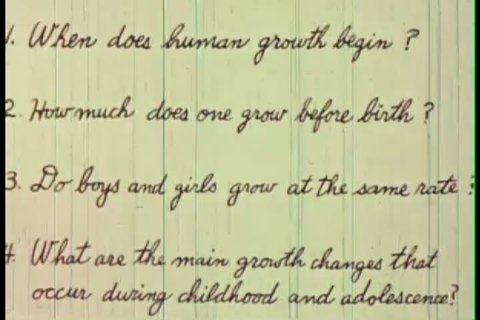 1. When does human growth begin?
2. How much does one grow before birth?
3. Do boys and girls grow at the same rate?
4. What are the main growth changes that
occur during childhood and adolescence?